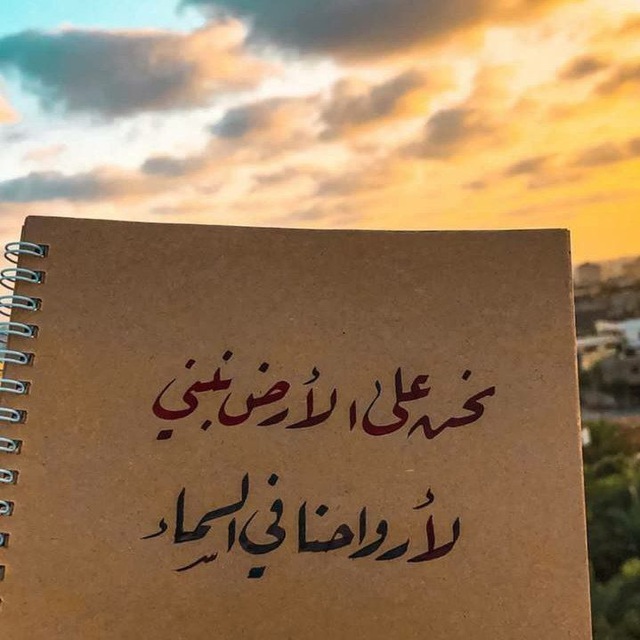 نحن على الأرض نبني
لأرواحنا في السماء